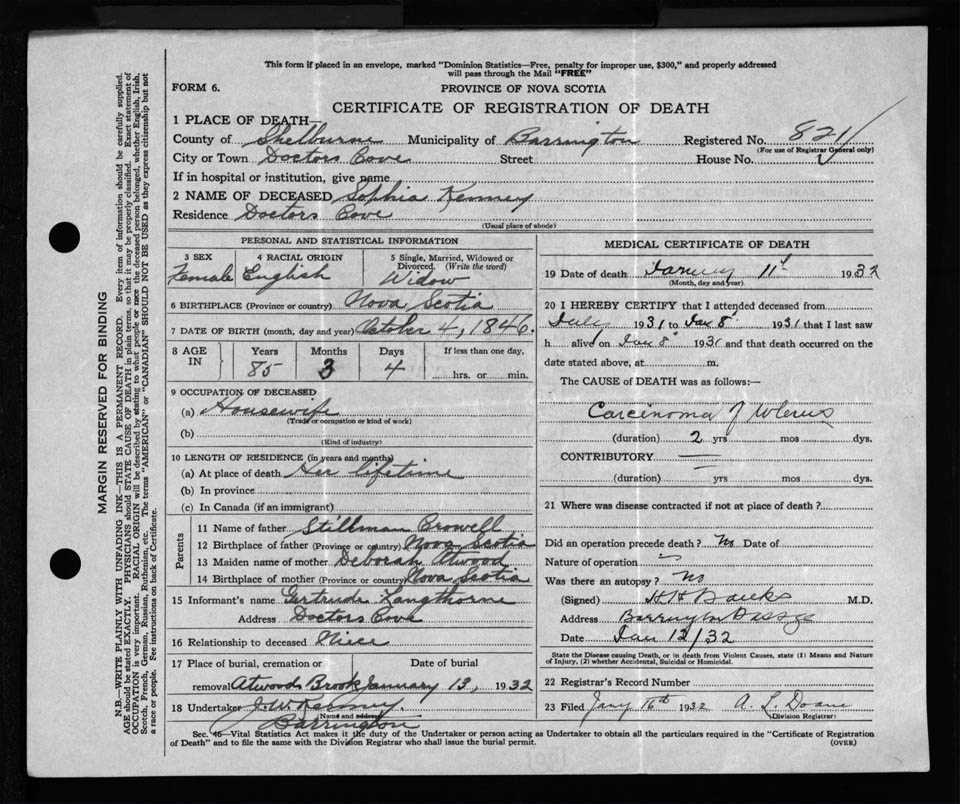 This form if placed in an envelope, marked "Dominion Statistics—Free, penalty for improper use, $300," and properly addressed
will pass through the Mail "FREE"
FORM 6. PROVINCE OF NOVA SCOTIA
CERTIFICATE OF REGISTRATION OF DEATH
1 PLACE OF DEATH—
County of Shelburne Municipality of Barrington Registered No. 821
(For use of Registrar General only)
City or Town Doctors Cove Street House No.
If in hospital or institution, give name
2 NAME OF DECEASED Sophia Kenney
Residence Doctors Cove
(Usual place of abode)
PERSONAL AND STATISTICAL INFORMATION
3 SEX 4 RACIAL ORIGIN 5 Single, Married, Widowed or
Divorced. (Write the word)
Female English Widow
6 BIRTHPLACE (Province or country) Nova Scotia
7 DATE OF BIRTH (month, day and year) October 4, 1846.
8 AGE IN Years Months Days If less than one day,
85 3 4 hrs. or min.
9 OCCUPATION OF DECEASED
(a) Housewife
(Trade or occupation or kind of work)
(b)
(Kind of industry)
10 LENGTH OF RESIDENCE (in years and months)
(a) At place of death Her lifetime
(b) In province
(c) In Canada (if an immigrant)
Parents
11 Name of father Stillman Crowell
12 Birthplace of father (Province or country) Nova Scotia
13 Maiden name of mother Deborah Atwood
14 Birthplace of mother (Province or country) Nova Scotia
15 Informant's name Gertrude Langthorne
Address Doctors Cove
16 Relationship to deceased Niece
17 Place of burial, cremation or Date of burial
removal Atwoods Brook January 13, 1932
18 Undertaker J. W. Kenney.
(Name and address)
Barrington
MEDICAL CERTIFICATE OF DEATH
19 Date of death January 11th 1932
(Month, day and year)
20 I HEREBY CERTIFY that I attended deceased from
1931 to Jan 8" 1931 that I last saw
h alive on Jan 8" 1931 and that death occurred on the
date stated above, at m.
The CAUSE of DEATH was as follows:—
Carcinoma of Uterus
(duration) 2 yrs mos dys.
CONTRIBUTORY —
(duration) yrs mos dys.
21 Where was disease contracted if not at place of death?
Did an operation precede death? No Date of
Nature of operation
Was there an autopsy? No
(Signed) H H Banks M.D.
Address Barrington Passage
Date Jan 12/32
State the Disease causing Death, or in death from Violent Causes, state (1) Means and Nature
of Injury, (2) whether Accidental, Suicidal or Homicidal.
22 Registrar's Record Number
23 Filed Jany 16th 1932 A. L. Doane
(Division Registrar)
Sec. 46—Vital Statistics Act makes it the duty of the Undertaker or person acting as Undertaker to obtain all the particulars required in the "Certificate of Registration
of Death" and to file the same with the Division Registrar who shall issue the burial permit. (OVER)
MARGIN RESERVED FOR BINDING
N.B.—WRITE PLAINLY WITH UNFADING INK—THIS IS A PERMANENT RECORD. Every item of information should be carefully supplied.
AGE should be stated EXACTLY. PHYSICIANS should STATE CAUSE OF DEATH in plain terms, so that it may be properly classified. Exact statement of
OCCUPATION is very important. RACIAL ORIGIN will be described by stating to what people or race the deceased person belonged, whether English, Irish,
Scotch, French, German, Russian, Ruthenian, etc. The terms "AMERICAN" or "CANADIAN" SHOULD NOT BE USED as they express citizenship but not
a race or people. See instructions on back of Certificate.